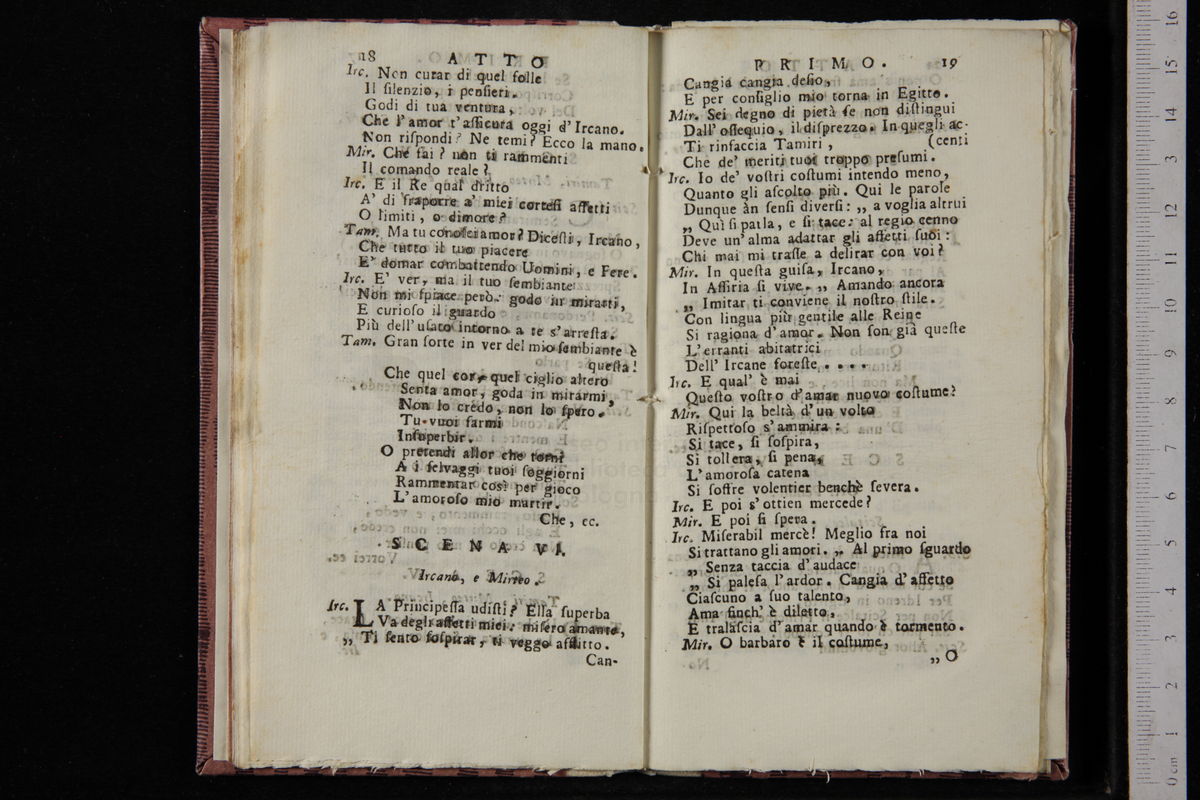 18 ATTO
Irc. Non curar di quel folle
Il ſilenzio, i penſieri.
Godi di tua ventura,
Che l'amor t'aſſicura oggi d'Ircano.
Non riſpondi? Ne temi? Ecco la mano.
Mir. Che fai? non ti rammenti
Il comando reale?
Irc. E il Re qual dritto
A' di fraporre a' miei corteſi affetti
O limiti, o dimore?
Tam. Ma tu conoſci amor? Diceſti, Ircano,
Che tutto il tuo piacere
E' domar combattendo Uomini, e Fere.
Irc. E' ver, ma il tuo ſembiante
Non mi ſpiace però: godo in mirarti,
E curioſo il guardo
Più dell'uſato intorno a te s'arreſta.
Tam. Gran ſorte in ver del mio ſembiante è
queſta!
Che quel cor, quel ciglio altero
Senta amor, goda in mirarmi,
Non lo credo, non lo ſpero.
Tu vuoi farmi
Inſuperbir.
O pretendi allor che torni
A i ſelvaggi tuoi ſoggiorni
Rammentar così per gioco
L'amoroſo mio martir.
Che, ec.
SCENA VI.
Ircano, e Mirteo.
Irc. LA Principeſſa udiſti? Ella ſuperba
Va degli affetti miei: miſero amante,
„ Ti ſento ſoſpirar, ti veggo afflitto.
Can-
PRIMO. 19
Cangia cangia deſio,
E per conſiglio mio torna in Egitto.
Mir. Sei degno di pietà ſe non diſtingui
Dall'oſſequio, il diſprezzo. In quegli ac-
Ti rinfaccia Tamiri, (centi
Che de' meriti tuoi troppo preſumi.
Irc. Io de' voſtri coſtumi intendo meno,
Quanto gli aſcolto più. Qui le parole
Dunque àn ſenſi diverſi: „ a voglia altrui
„ Quì ſi parla, e ſi tace: al regio cenno
Deve un'alma adattar gli affetti ſuoi:
Chi mai mi traſſe a delirar con voi?
Mir. In queſta guiſa, Ircano,
In Aſſiria ſi vive. „ Amando ancora
„ Imitar ti conviene il noſtro ſtile.
Con lingua più gentile alle Reine
Si ragiona d'amor. Non ſon già queſte
L'erranti abitatrici
Dell' Ircane foreſte. . . . .
Irc. E qual' è mai
Queſto voſtro d'amar nuovo coſtume?
Mir. Qui la beltà d'un volto
Riſpettoſo s'ammira:
Si tace, ſi ſoſpira,
Si tollera, ſi pena,
L'amoroſa catena
Si ſoffre volentier benchè ſevera.
Irc. E poi s'ottien mercede?
Mir. E poi ſi ſpera.
Irc. Miſerabil mercè! Meglio fra noi
Si trattano gli amori. „ Al primo ſguardo
„ Senza taccia d'audace
„ Si paleſa l'ardor. Cangia d'affetto
Ciaſcuno a ſuo talento,
Ama finch' è diletto,
E tralaſcia d'amar quando è tormento.
Mir. O barbaro è il coſtume,
„ O
16
15
14
13
12
11
10
9
8
7
6
5
4
3
2
1
0 cm